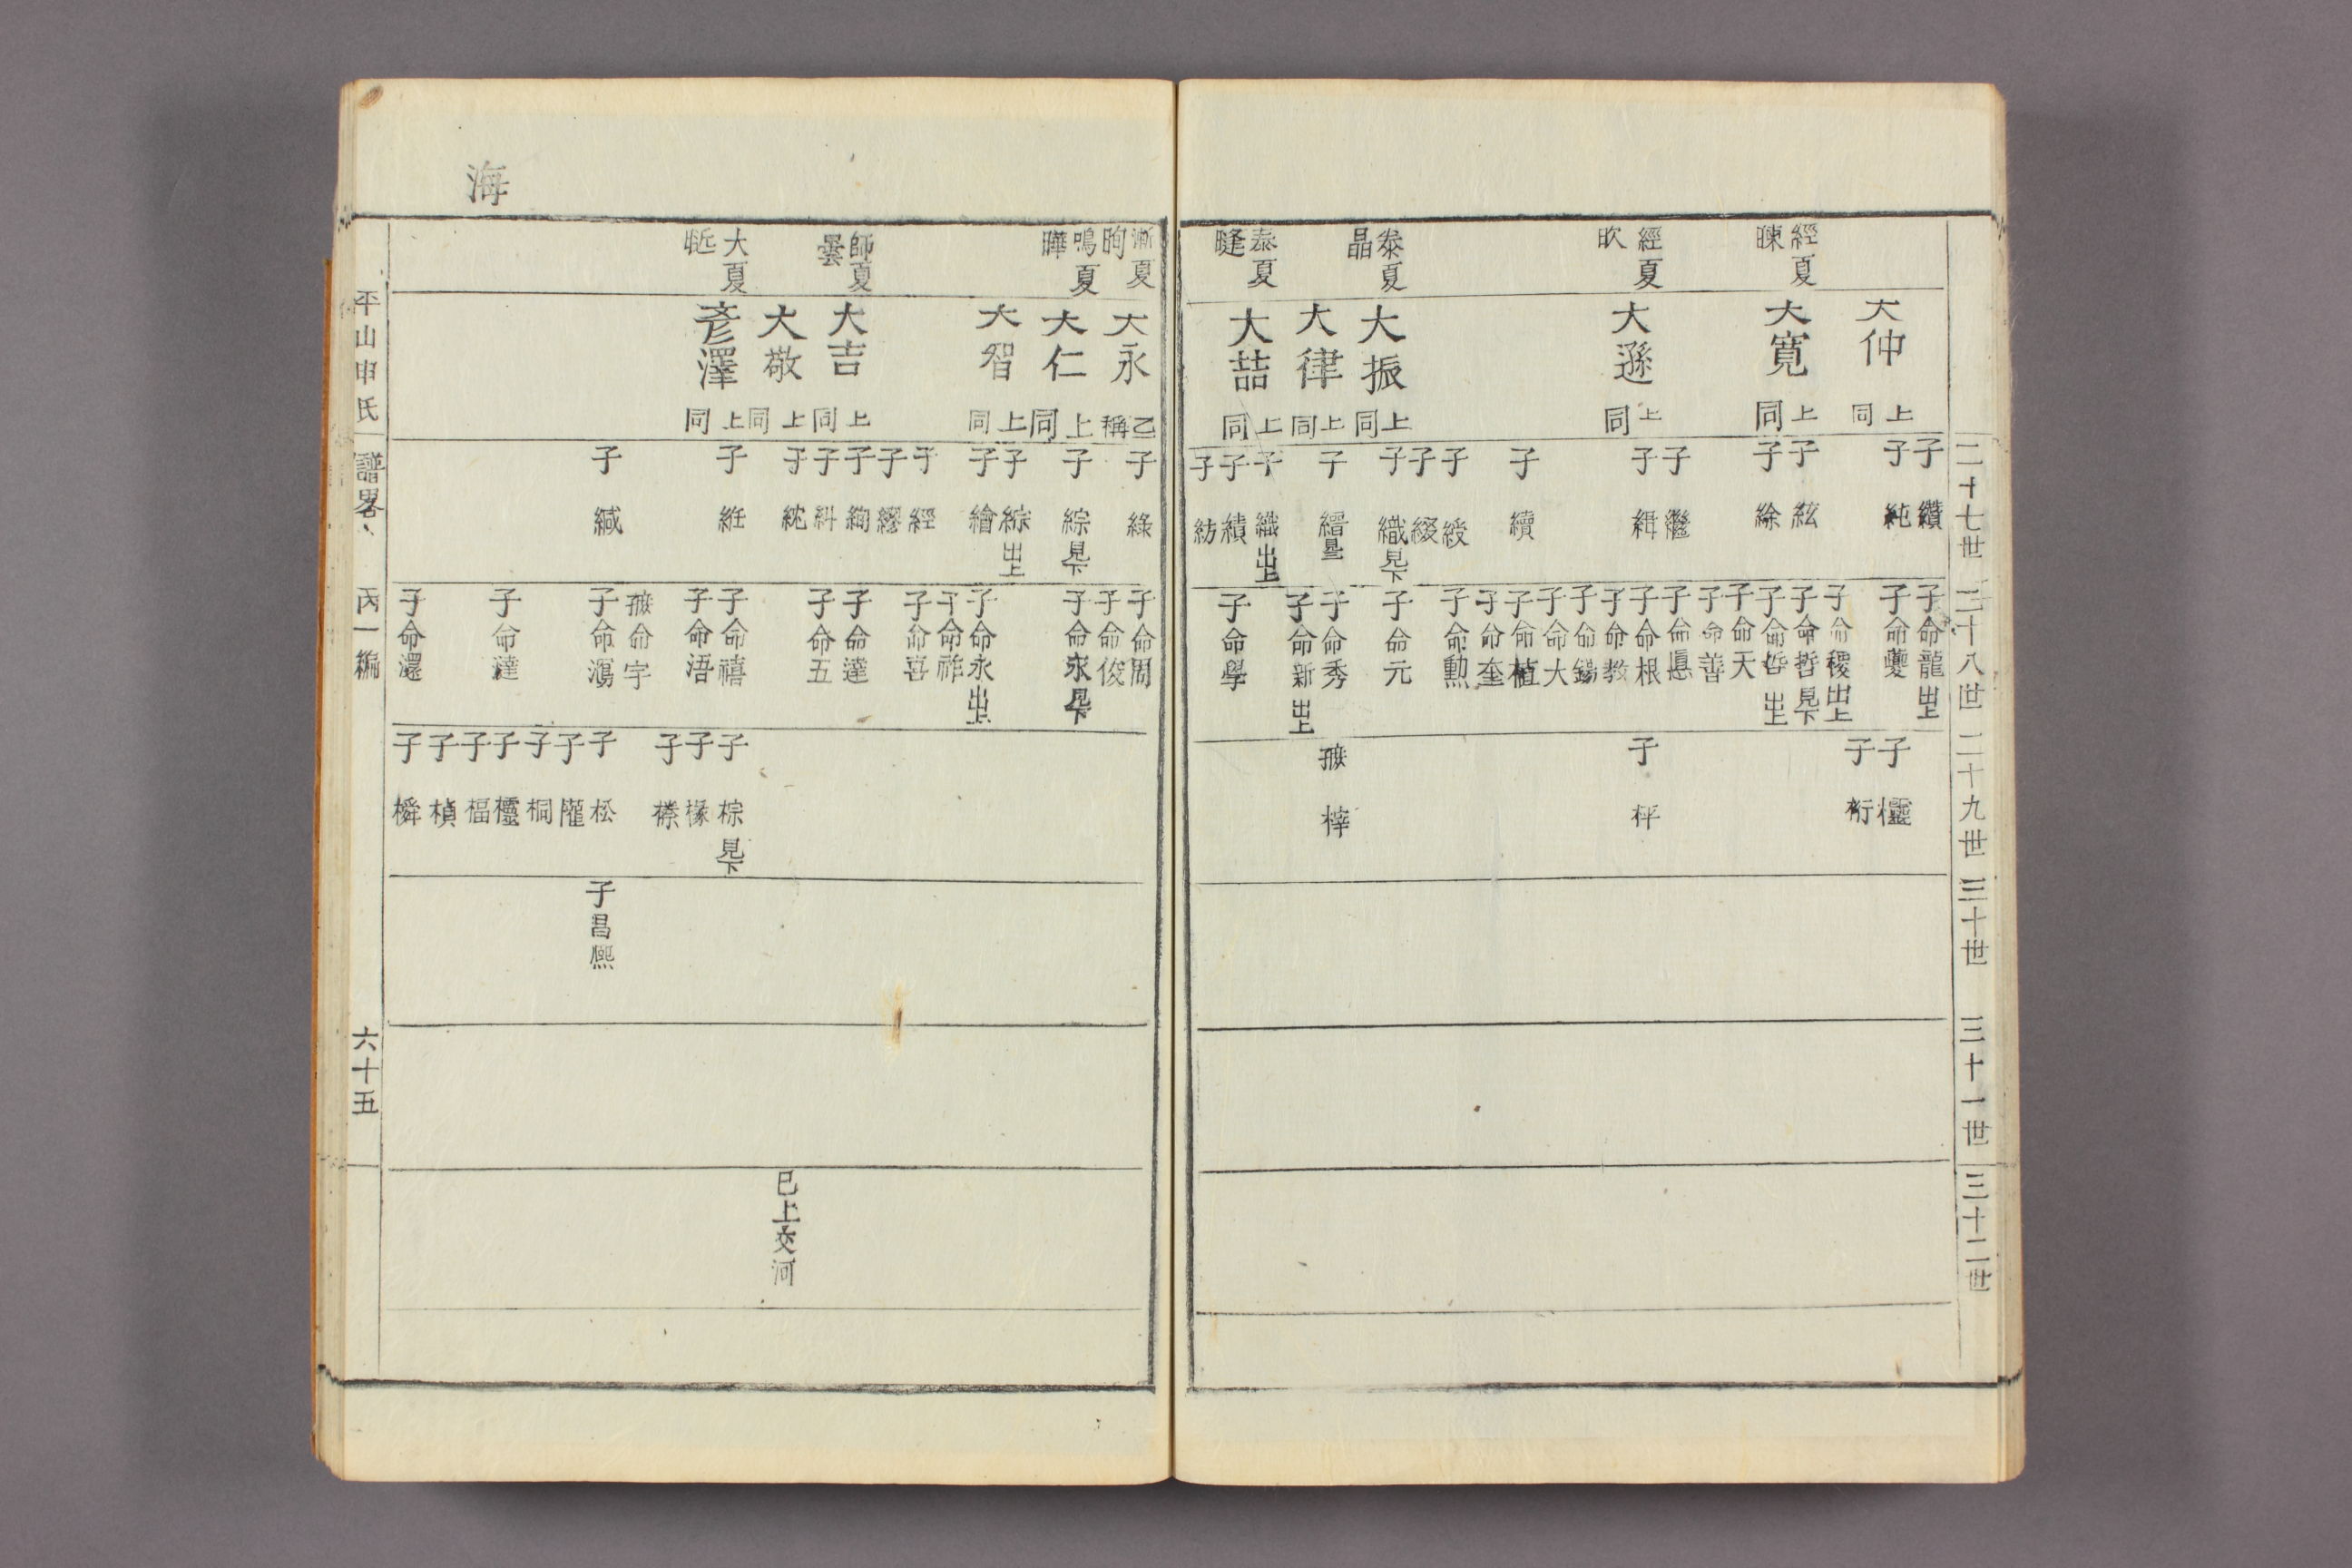 二十七世
二十八世
二十九世
三十世
三十一世
三十二世
大仲
上同
經夏
暕
大寬
上同
經夏
昳
大遜
上同
泰夏
晶
大振
上同
大律
上同
泰夏
大喆
上同
子 纘
子 純
子 絃
子 緰
子 繼
子 緝
子 續
子 綬
子 綴
子 織 見下
子 縉
子 織 出上
子 績
子 紡
子命龍 出上
子命夔
子命稷 出上
子命哲 見下
子命哲 出上
子命天
子命善
子命根
子命教
子命錫
子命大
子命植
子命奎
子命勳
子命元
子命秀
子命新 出上
子命學
子 櫺
子 桁
子 枰
梓
海
漸夏
昫
大永
乙稱
鳴夏
曄
大仁
上同
大智
上同
師夏
曇
大吉
上同
大敬
上同
大夏
彦澤
上同
子 綠
子 綜 見下
子 綜 出上
子 繪
子 經
子 繆
子 絢
子 糾
子 紞
子 維
子 緘
子命周
子命俊
子命永 見下
子命永 出上
子命祚
子命喜
子命達
子命五
子命禧
子命浯
命宇
子命達
子命還
子 棕 見下
子 椽
子 松
子 桐
子 櫺
子 楅
子 楨
子 橓
子昌熙
已上交河
平山申氏
譜畧
丙一編
六十五